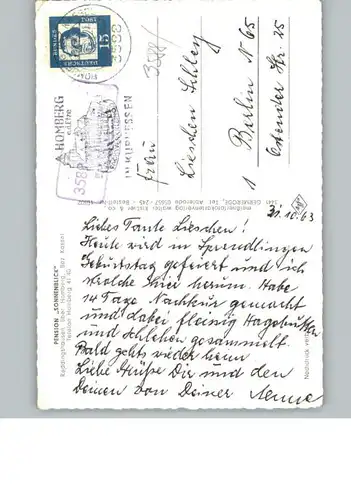 HOMBERG
a.d.Efze
IN KURHESSEN
3588
15
DEUTSCHE
3588/
Frau
Lieschen Schley
1 Berlin N 65
Ostender Str. 25
PENSION „SONNENBLICK"
Bez. Kassel
Telefon Homberg
31.10.63
Liebes Tante Lieschen!
Heute wird in Sprendlingen
Geburtstag gefeiert und ich
hier herum. Habe
14 Tage Nachkur gemacht
und dabei fleißig Hagebutten
und Schlehen gesammelt.
Bald gehts wieder heim
Liebe Grüße Dir und den
Deinen von Deiner